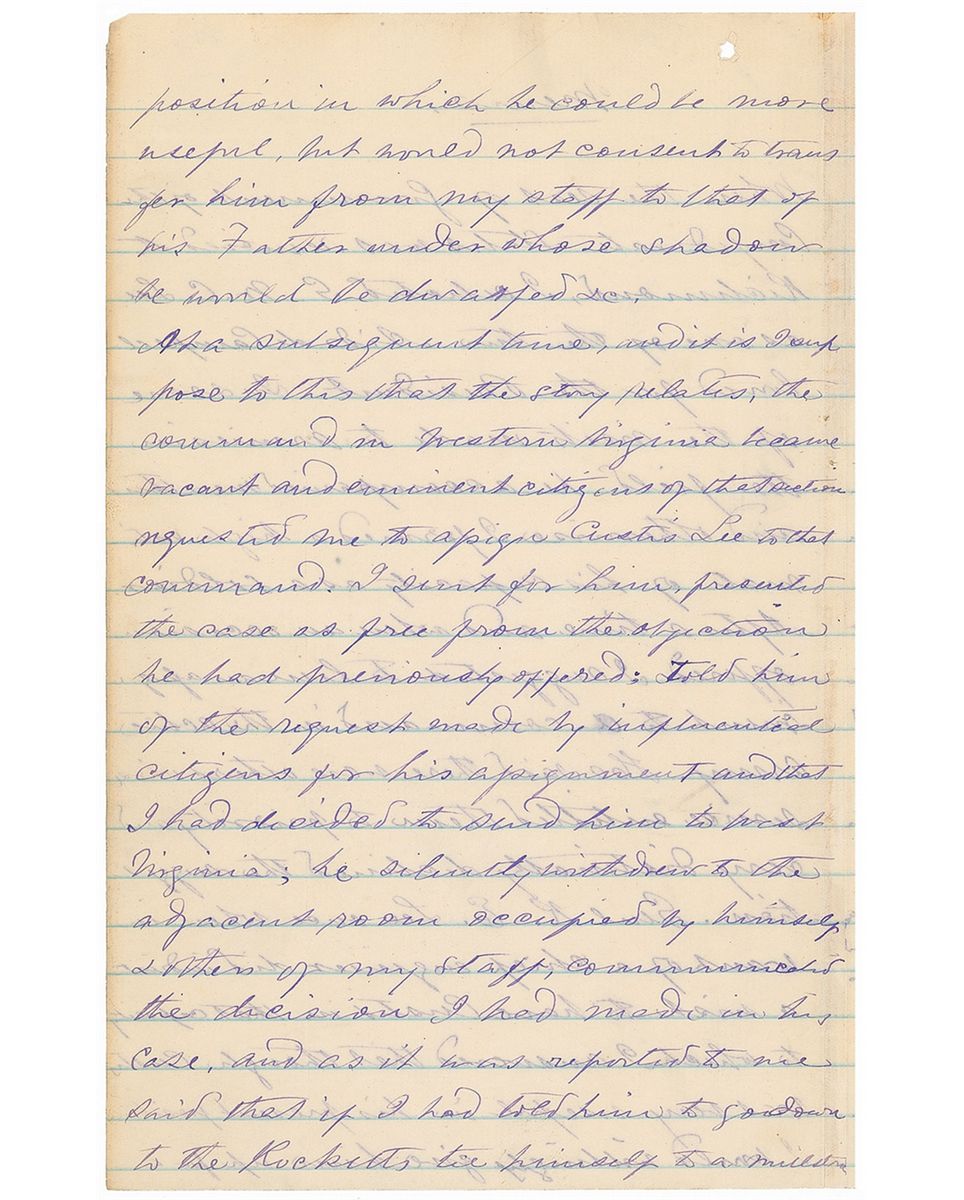 position in which he could be more
useful, but would not consent to trans
fer him from my staff to that of
his Father under whose shadow
he would be dwarfed &c.
At a subsequent time, and it is I sup
pose to this that the story relates, the
command in western Virginia became
vacant and eminent citizens of that section
requested me to assign Custis Lee to that
command. I sent for him, presented
the case as free from the objection
he had previously offered; told him
of the request made by influential
citizens for his assignment and that
I had decided to send him to West
Virginia; he silently withdrew to the
adjacent room occupied by himself
& others of my staff, communicated
the decision I had made in his
case, and as it was reported to me
said that if I had told him to go down
to the Rocketts tie himself to a millstone